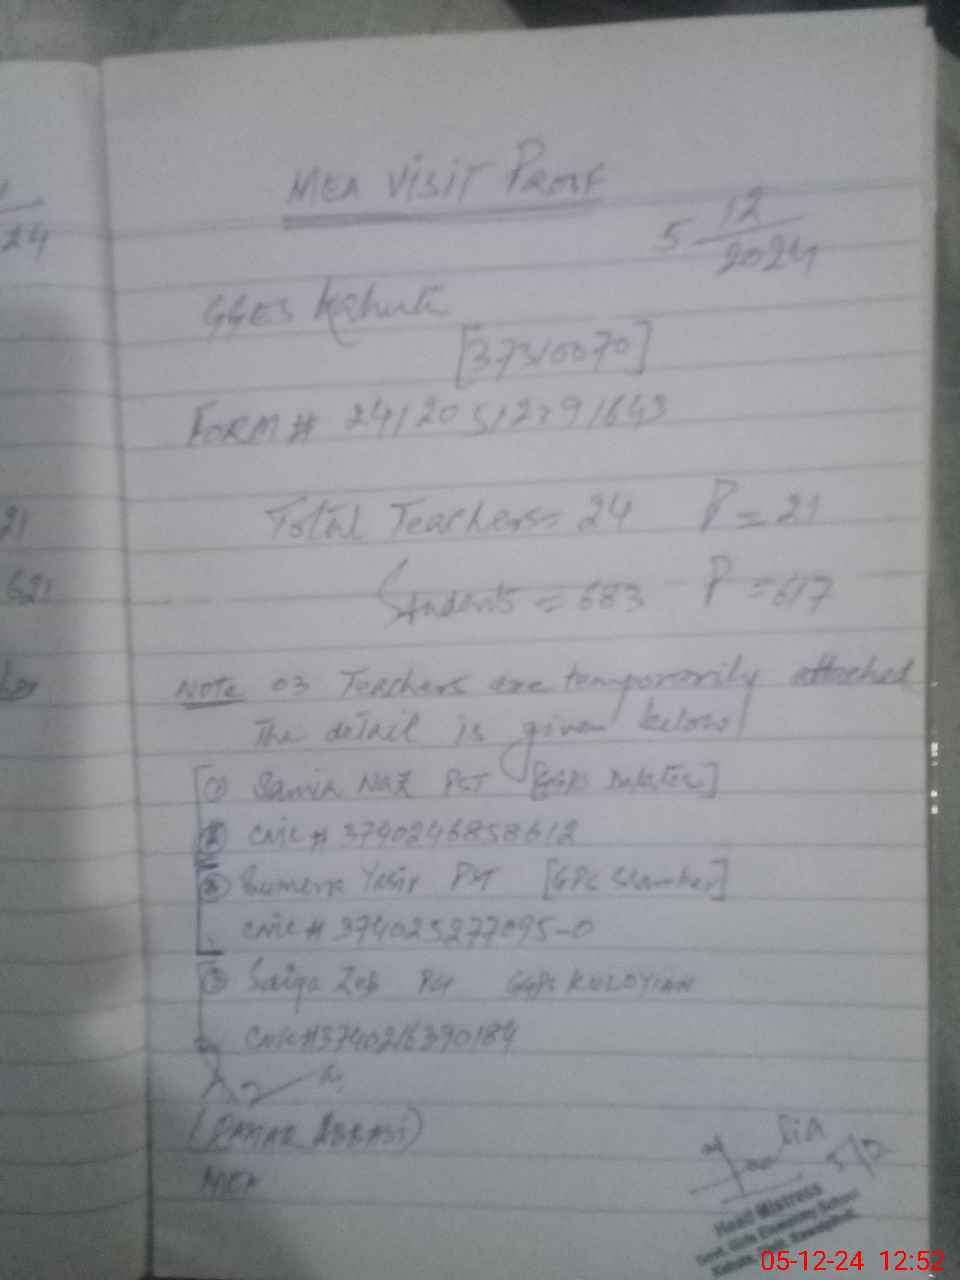 MEA VISIT PROOF
5 12
2024
24
GGES Kahuta
[37310070]
FORM # 24120512
21
Total Teachers = 24 P = 21
621
Students = 683 P = 617
Note 03 Teachers are temporarily attached
The detail is given below
① Samia Naz PST
Cnic # 3740246858612
Sumera Yasir PST
Cnic # 374025277095-0
③ Saiqa Zeb PST GGPS
Cnic # 3740216390184
ABBASI)
MEA
5/12
Head Mistress
Govt. Girls Elementary School
Kahuta, Distt. Rawalpindi.
05-12-24 12:52